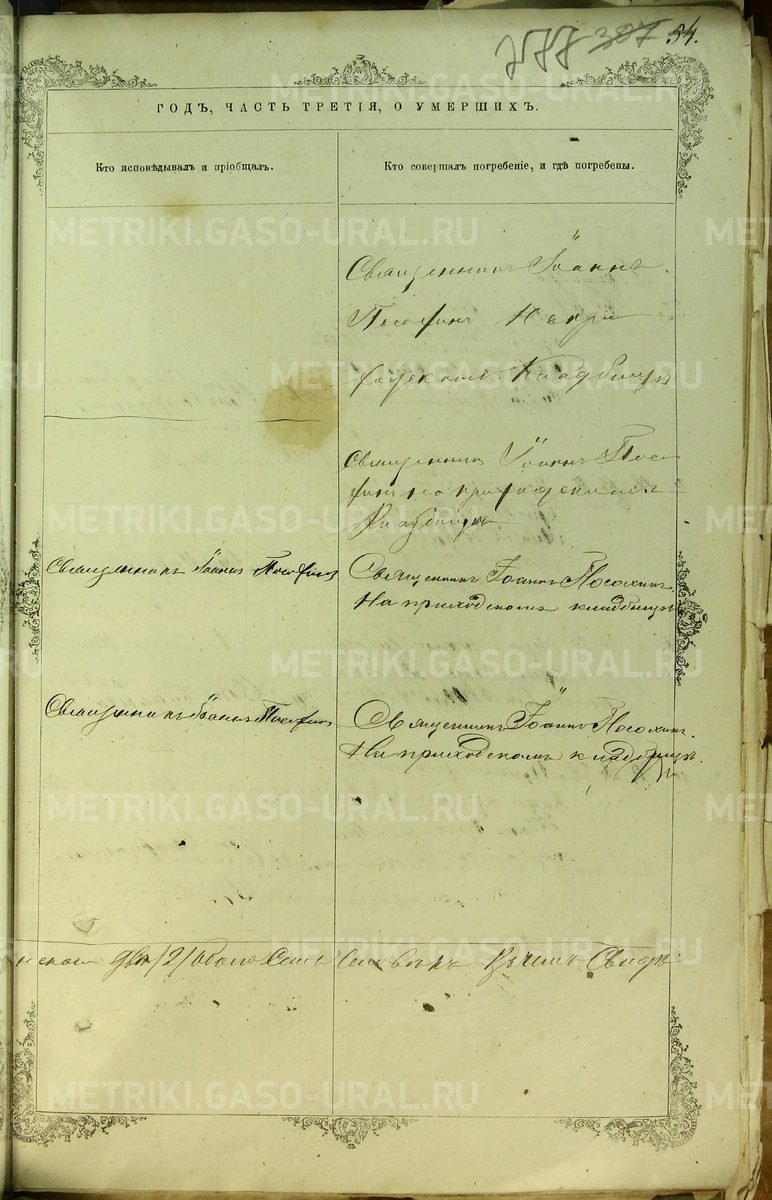 277 387 54.
ГОДЪ, ЧАСТЬ ТРЕТІЯ, О УМЕРШИХЪ.
Кто исповѣдывалъ и пріобщалъ.
Кто совершалъ погребеніе, и гдѣ погребены.
METRIKI.GASO-URAL.RU
Священникъ Іоаннъ
Посохинъ На при
ходскомъ Кладбищѣ
Священникъ Іоаннъ Посо
хинъ на приходскомъ
Кладбищѣ
Священникъ Іоаннъ Посохинъ
Священникъ Іоаннъ Посохинъ.
На приходскомъ кладбищѣ
Священникъ Іоаннъ Посохинъ
Священникъ Іоаннъ Посохинъ.
На приходскомъ кладбищѣ.
два /2/ обоего